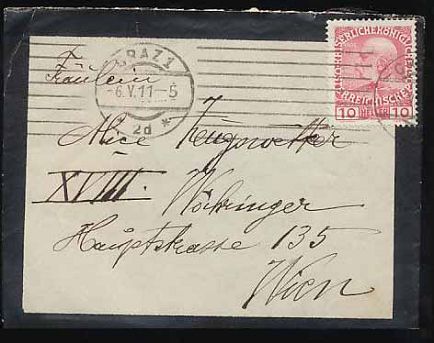 GRAZ 1
-6.V.11-5
2d *
KAISERLICHE KÖNIGL
ÖSTERREICHISCHE
10 HELLER 10
Fräulein
Alice
XVIII. Währinger
Hauptstrasse 135
Wien